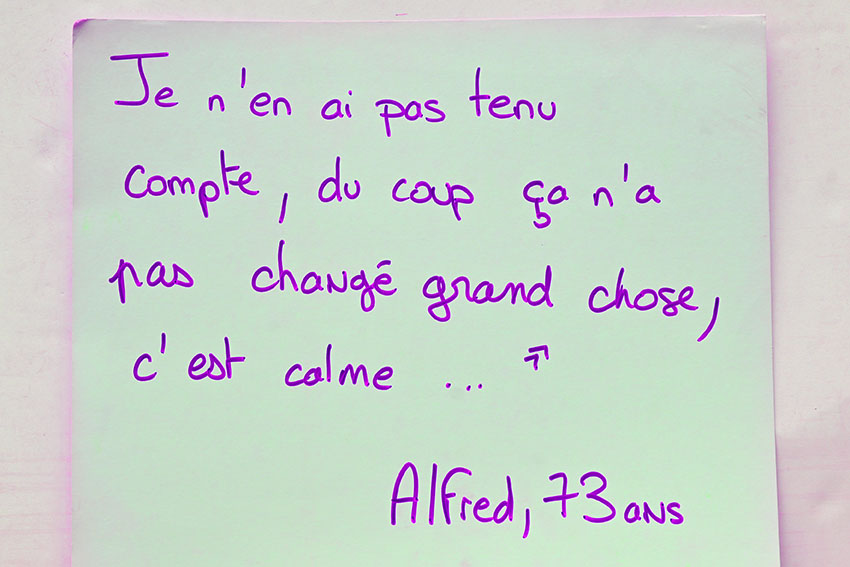 Je n'en ai pas tenu
compte, du coup ça n'a
pas changé grand chose,
c'est calme ...
Alfred, 73 ans